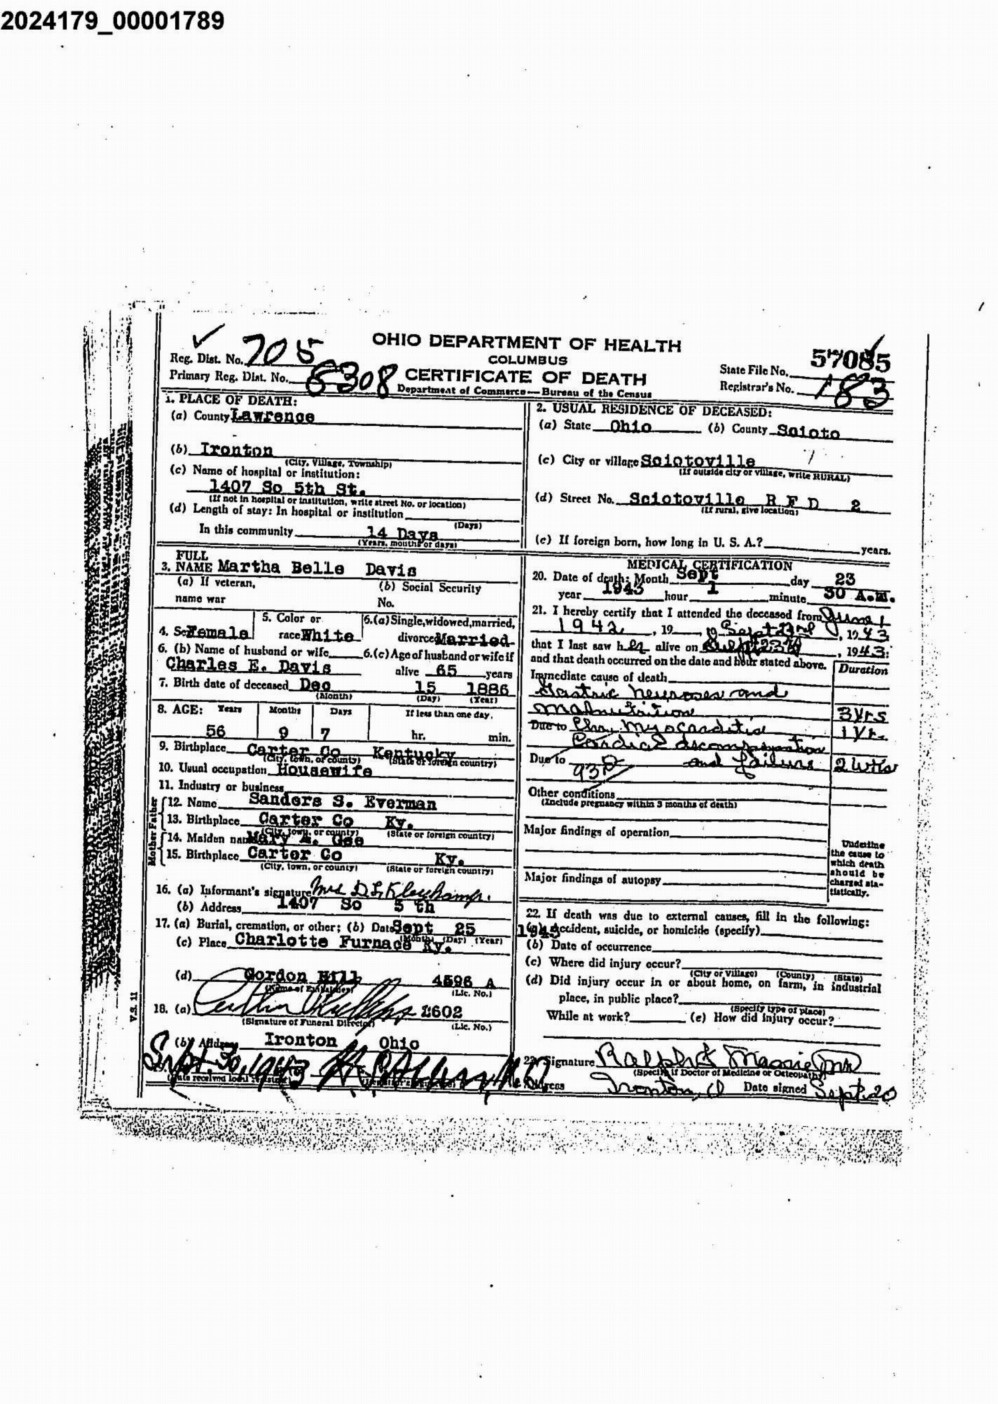 2024179_00001789
OHIO DEPARTMENT OF HEALTH
COLUMBUS
CERTIFICATE OF DEATH
Department of Commerce—Bureau of the Census
Reg. Dist. No. 705
Primary Reg. Dist. No. 8308
State File No. 57085
Registrar's No. 183
1. PLACE OF DEATH:
(a) County Lawrence
(b) Ironton
(City, Village, Township)
(c) Name of hospital or institution:
1407 So 5th St.
(If not in hospital or institution, write street No. or location)
(d) Length of stay: In hospital or institution
(Days)
In this community 14 Days
(Years, months or days)
2. USUAL RESIDENCE OF DECEASED:
(a) State Ohio (b) County Scioto
(c) City or village Sciotoville
(If outside city or village, write RURAL)
(d) Street No. Sciotoville R F D 2
(If rural, give location)
(e) If foreign born, how long in U. S. A.? years.
FULL
3. NAME Martha Belle Davis
(a) If veteran,
name war
(b) Social Security
No.
4. Sex Female
5. Color or
race White
6. (a) Single, widowed, married,
divorced Married
6. (b) Name of husband or wife
Charles E. Davis
6. (c) Age of husband or wife if
alive 65 years
7. Birth date of deceased Dec 15 1886
(Month) (Day) (Year)
8. AGE: Years Months Days If less than one day,
56 9 7 hr. min.
9. Birthplace Carter Co Kentucky
(City, town, or county) (State or foreign country)
10. Usual occupation Housewife
11. Industry or business
Father
12. Name Sanders S. Everman
13. Birthplace Carter Co Ky.
(City, town, or county) (State or foreign country)
Mother
14. Maiden name Mary A. Gee
15. Birthplace Carter Co Ky.
(City, town, or county) (State or foreign country)
16. (a) Informant's signature Mrs
(b) Address 1407 So 5 th
17. (a) Burial, cremation, or other; (b) Date Sept 25 1943
(Month) (Day) (Year)
(c) Place Charlotte Furnace Ky.
(d) Gordon Hill 4596 A
(Name of Embalmer) (Lic. No.)
18. (a) 2602
(Signature of Funeral Director) (Lic. No.)
(b) Address Ironton Ohio
Sept. 30, 1943
(Date received local registrar)
V.S. 11
MEDICAL CERTIFICATION
20. Date of death: Month Sept day 23
year 1943 hour 1 minute 30 A.M.
21. I hereby certify that I attended the deceased from June 1
1942, 19 to Sept 23rd, 1943
that I last saw her alive on Sept 23rd, 1943;
and that death occurred on the date and hour stated above.
Duration
Immediate cause of death
Gastric neuroses and
malnutrition 3 yrs
Due to Chr. Myocarditis 1 yr.
Cardiac decompensation
Due to and failure 2 wks
93D
Other conditions
(Include pregnancy within 3 months of death)
Major findings of operation
Major findings of autopsy
Underline
the cause to
which death
should be
charged sta-
tistically.
22. If death was due to external causes, fill in the following:
(a) Accident, suicide, or homicide (specify)
(b) Date of occurrence
(c) Where did injury occur?
(City or Village) (County) (State)
(d) Did injury occur in or about home, on farm, in industrial
place, in public place?
(Specify type of place)
While at work? (e) How did injury occur?
23. Signature Ralph Massie MD
(Specify if Doctor of Medicine or Osteopathy)
Address Ironton, O Date signed Sept 20